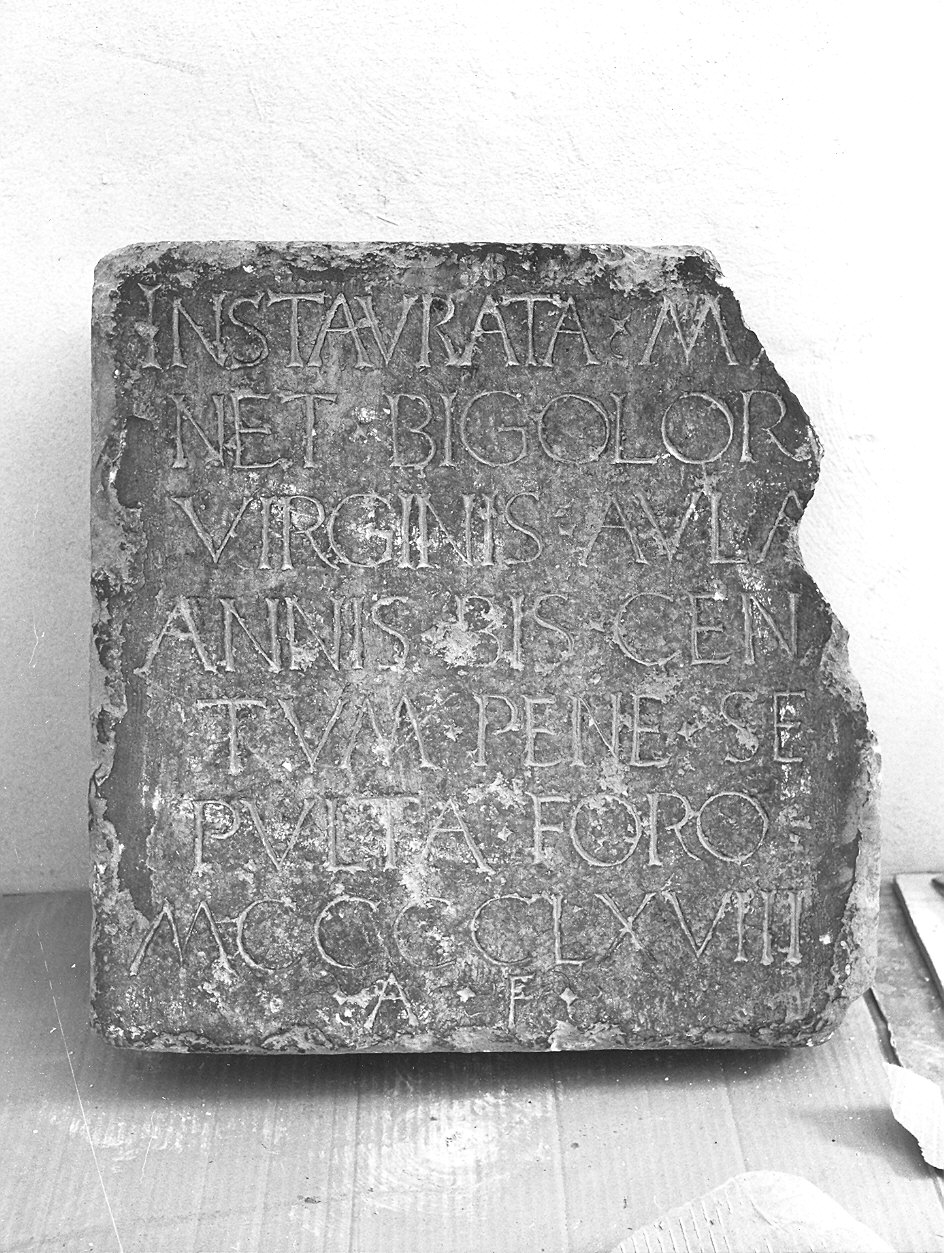 INSTAVRATA · MA
NET · BIGOLOR
VIRGINIS · AVLA
ANNIS · BIS · CEN
TVM · PENE · SE
PVLTA · FORO
MCCCCLXVIII
· A · F ·